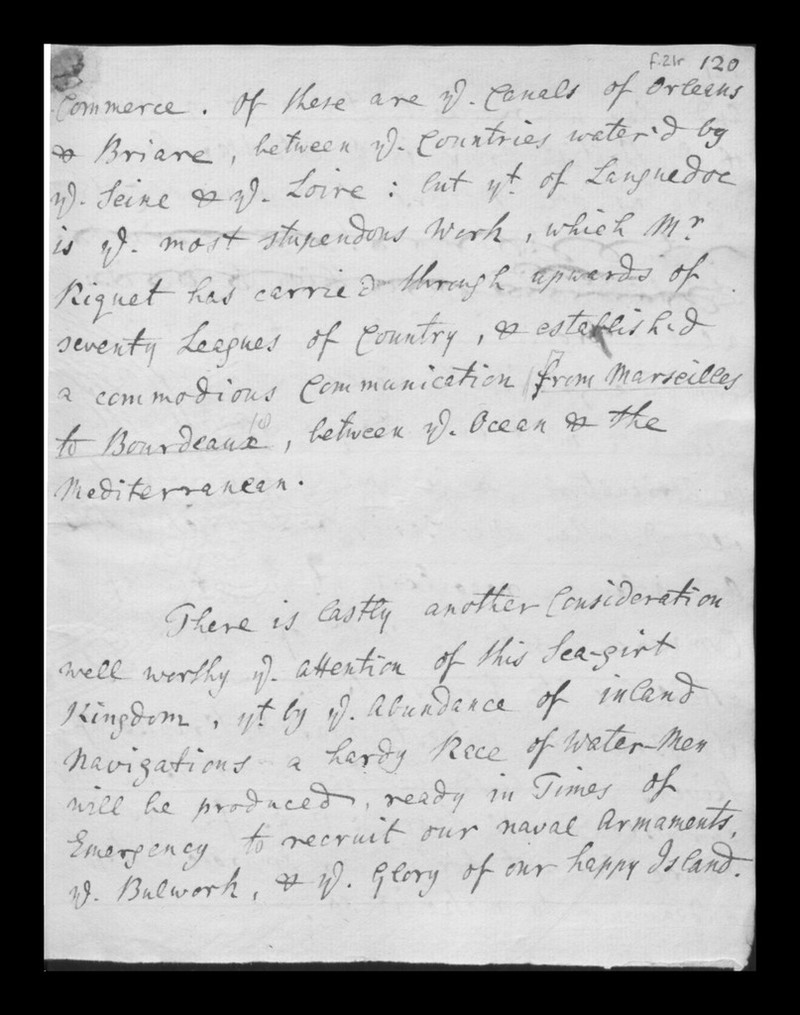 f.21r 120
Commerce. Of these are ye. Canals of Orleans
& Briare, between ye. Countries water'd by
ye. Seine & ye. Loire: but yt. of Languedoc
is ye. most stupendous Work, which Mr
Riquet has carried through upwards of
seventy Leagues of Country, & established
a commodious Communication from Marseilles
to Bourdeaux, between ye. Ocean & the
Mediterranean.
There is lastly another Consideration
well worthy ye. Attention of this Sea-girt
Kingdom, yt. by ye. Abundance of inland
Navigations a hardy Race of Water-Men
will be produced, ready in Times of
Emergency to recruit our naval Armaments,
ye. Bulwork, & ye. Glory of our happy Island.